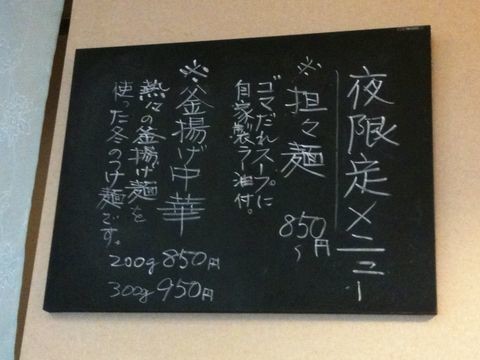 夜限定メニュー
※担々麺
850円〜
ゴマだれスープに
自家製ラー油付。
※釜揚げ中華
熱々の釜揚げ麺を
使った冬のつけ麺です。
200g 850円
300g 950円